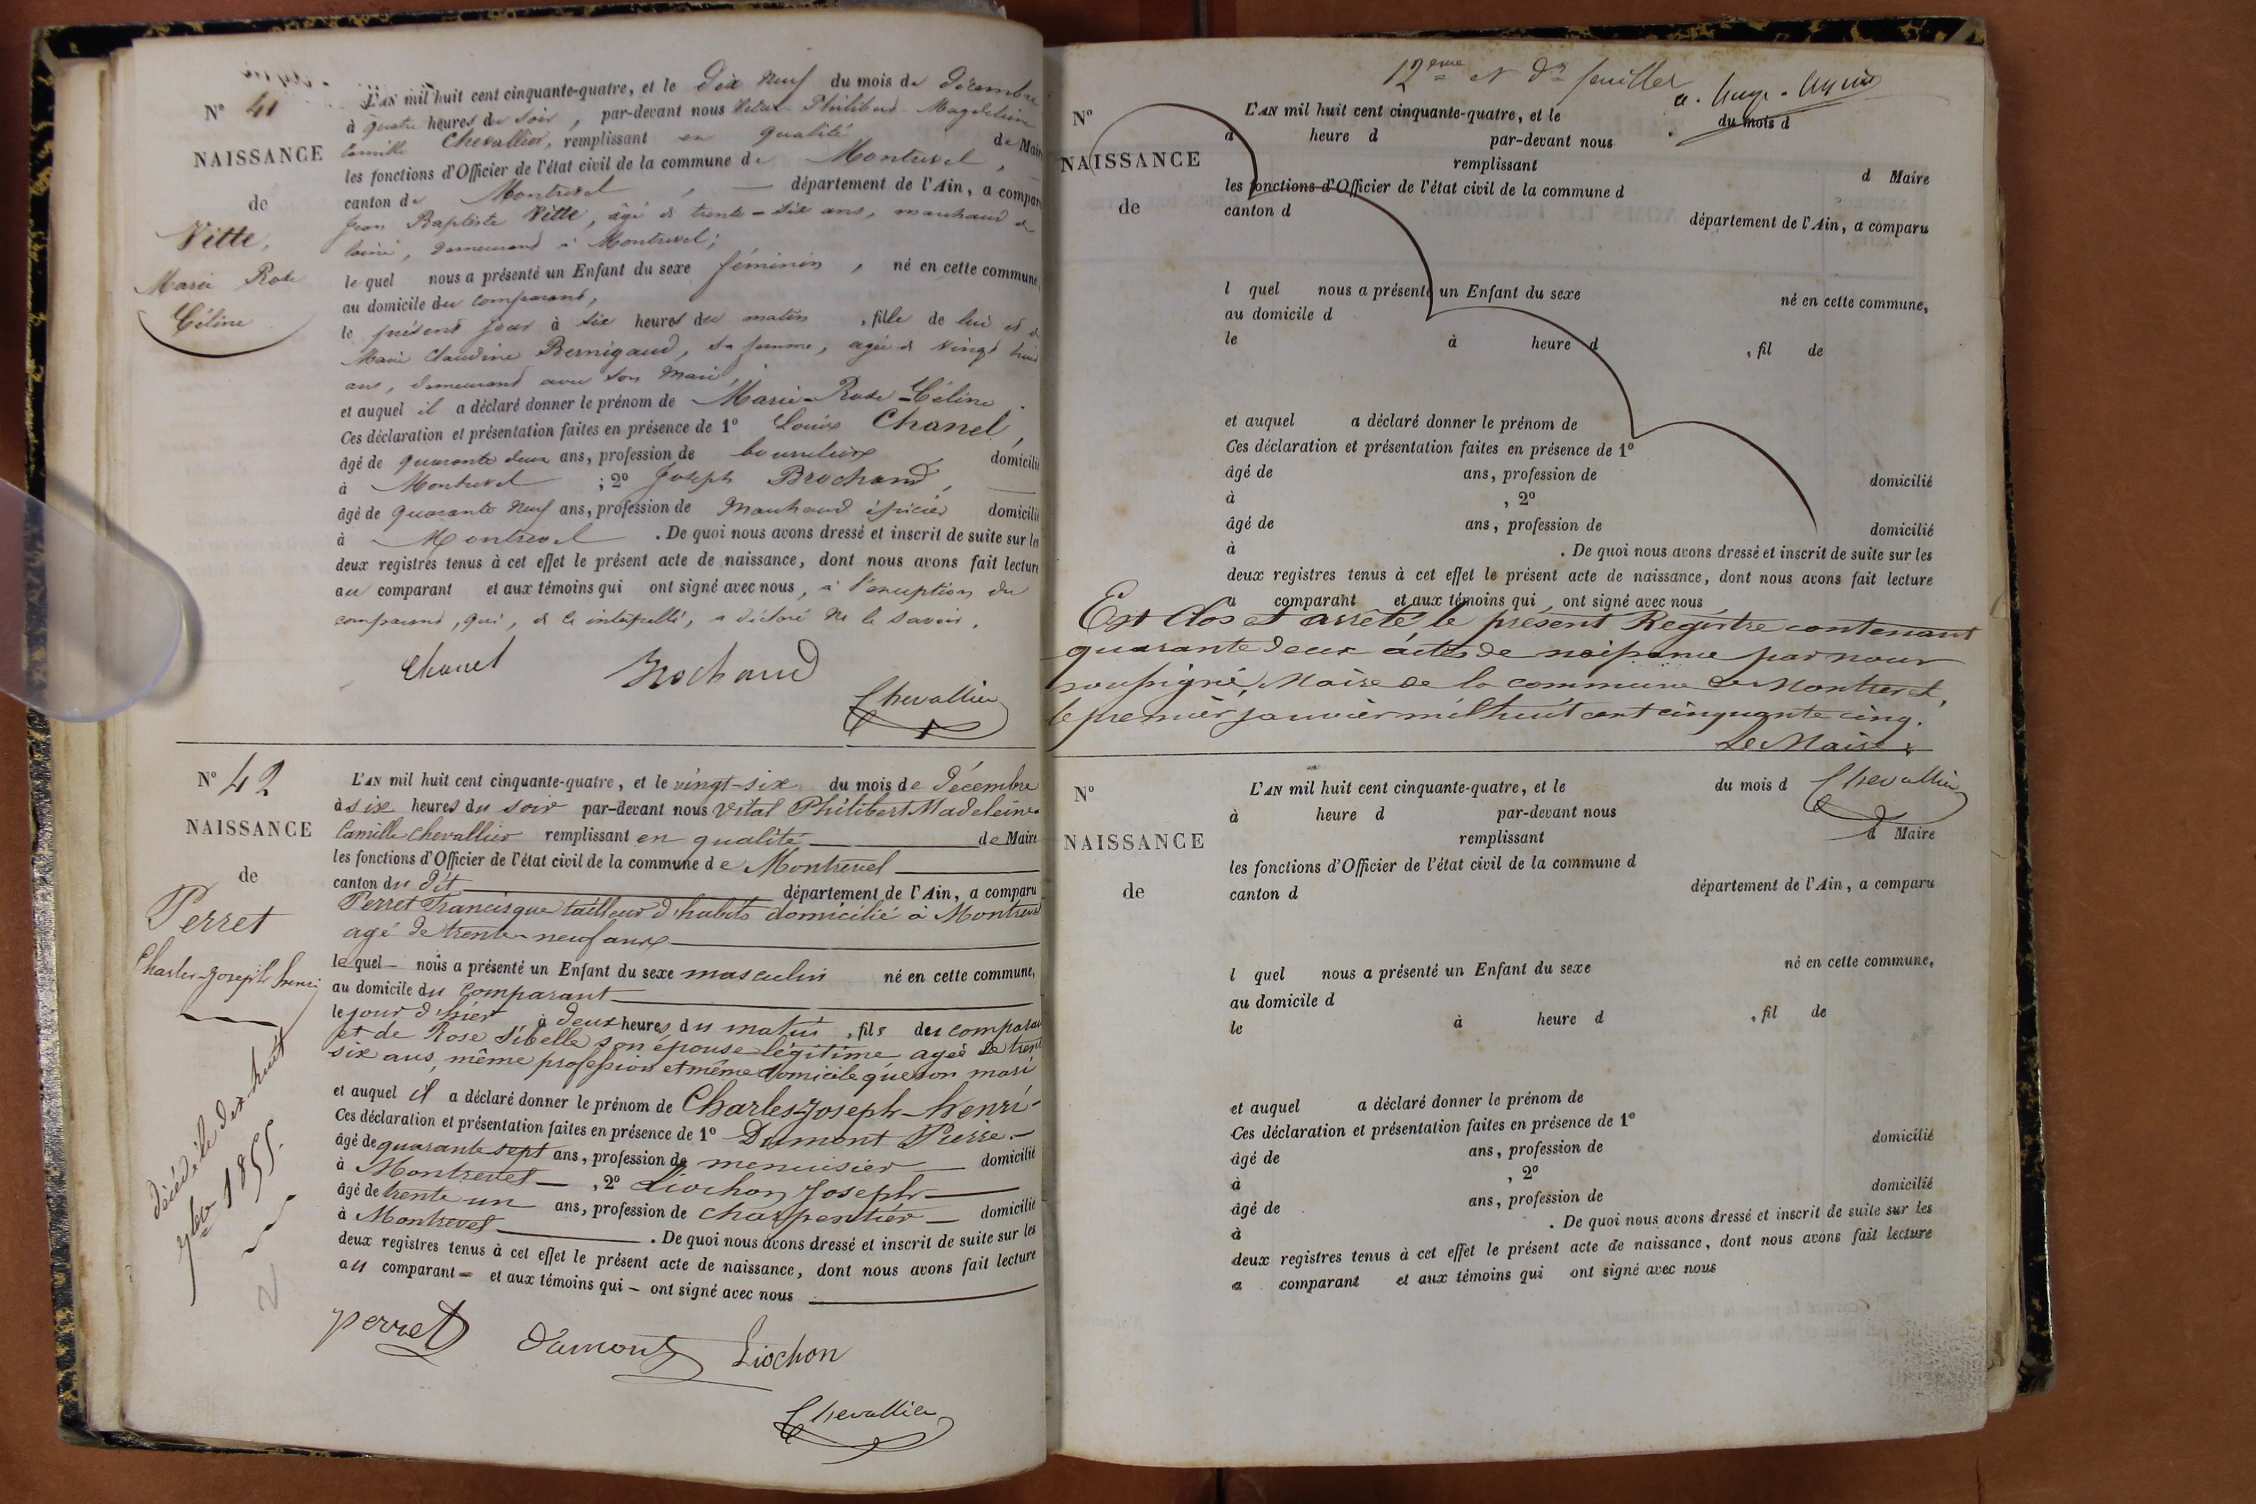 N° 41
NAISSANCE
de
Vitte,
Marie Rose
Céline
L'AN mil huit cent cinquante-quatre, et le Dix neuf du mois de Décembre
à quatre heures du soir, par-devant nous Vital Philibert Magdeleine
Camille Chevallier, remplissant en qualité de Maire
les fonctions d'Officier de l'état civil de la commune de Montrevel,
canton de Montrevel, département de l'Ain, a comparu
Jean Baptiste Vitte, âgé de trente-six ans, marchand de
laine, demeurant à Montrevel;
le quel nous a présenté un Enfant du sexe féminin, né en cette commune,
au domicile du comparant,
le présent jour à six heures du matin, fille de lui et de
Marie Claudine Bernigaud, sa femme, agée de vingt huit
ans, demeurant avec son mari,
et auquel il a déclaré donner le prénom de Marie-Rose-Céline.
Ces déclaration et présentation faites en présence de 1° Louis Chanel,
âgé de quarante deux ans, profession de bourrelier, domicilié
à Montrevel ; 2° Joseph Brochand,
âgé de quarante neuf ans, profession de marchand épicier domicilié
à Montrevel. De quoi nous avons dressé et inscrit de suite sur les
deux registres tenus à cet effet le présent acte de naissance, dont nous avons fait lecture
au comparant et aux témoins qui ont signé avec nous, à l'exception du
comparant, qui, de ce interpellé, a déclaré ne le savoir.
Chanel Brochand
Chevallier
N° 42
NAISSANCE
de
Perret
Charles-Joseph henri
décédé le dix huit
7bre 1855.
L'AN mil huit cent cinquante-quatre, et le vingt-six du mois de décembre
à six heures du soir par-devant nous Vital Philibert Madeleine
Camille Chevallier remplissant en qualité de Maire
les fonctions d'Officier de l'état civil de la commune de Montrevel
canton du dit département de l'Ain, a comparu
Perret Francisque tailleur d'habits domicilié à Montrevel
agé de trente-neuf ans
le quel nous a présenté un Enfant du sexe masculin né en cette commune,
au domicile du comparant
le jour d'hier à deux heures du matin, fils du comparant
et de Rose Sibelle son épouse légitime agée de trente
six ans, même profession et même domicile que son mari
et auquel il a déclaré donner le prénom de Charles-Joseph-henri-
Ces déclaration et présentation faites en présence de 1° Dumont Pierre
âgé de quarante sept ans, profession de menuisier domicilié
à Montrevel, 2° Liochon Joseph
âgé de trente un ans, profession de charpentier domicilié
à Montrevel. De quoi nous avons dressé et inscrit de suite sur les
deux registres tenus à cet effet le présent acte de naissance, dont nous avons fait lecture
au comparant et aux témoins qui ont signé avec nous
perret Dumont Liochon
Chevallier
12eme et Dr feuillet
N°
NAISSANCE
de
L'AN mil huit cent cinquante-quatre, et le du mois d
à heure d par-devant nous
remplissant d Maire
les fonctions d'Officier de l'état civil de la commune d
canton d département de l'Ain, a comparu
l quel nous a présenté un Enfant du sexe né en cette commune,
au domicile d
le à heure d , fil de
et auquel a déclaré donner le prénom de
Ces déclaration et présentation faites en présence de 1°
âgé de ans, profession de domicilié
à , 2°
âgé de ans, profession de domicilié
à . De quoi nous avons dressé et inscrit de suite sur les
deux registres tenus à cet effet le présent acte de naissance, dont nous avons fait lecture
a comparant et aux témoins qui ont signé avec nous
Est Clos et arrêté le présent Registre contenant
quarante deux actes de naissance par nous
soussigné, Maire de la commune de Montrevel,
le premier janvier mil huit cent cinquante cinq.
Le Maire
Chevallier
N°
NAISSANCE
de
L'AN mil huit cent cinquante-quatre, et le du mois d
à heure d par-devant nous
remplissant d Maire
les fonctions d'Officier de l'état civil de la commune d
canton d département de l'Ain, a comparu
l quel nous a présenté un Enfant du sexe né en cette commune,
au domicile d
le à heure d , fil de
et auquel a déclaré donner le prénom de
Ces déclaration et présentation faites en présence de 1°
âgé de ans, profession de domicilié
à , 2°
âgé de ans, profession de domicilié
à . De quoi nous avons dressé et inscrit de suite sur les
deux registres tenus à cet effet le présent acte de naissance, dont nous avons fait lecture
a comparant et aux témoins qui ont signé avec nous